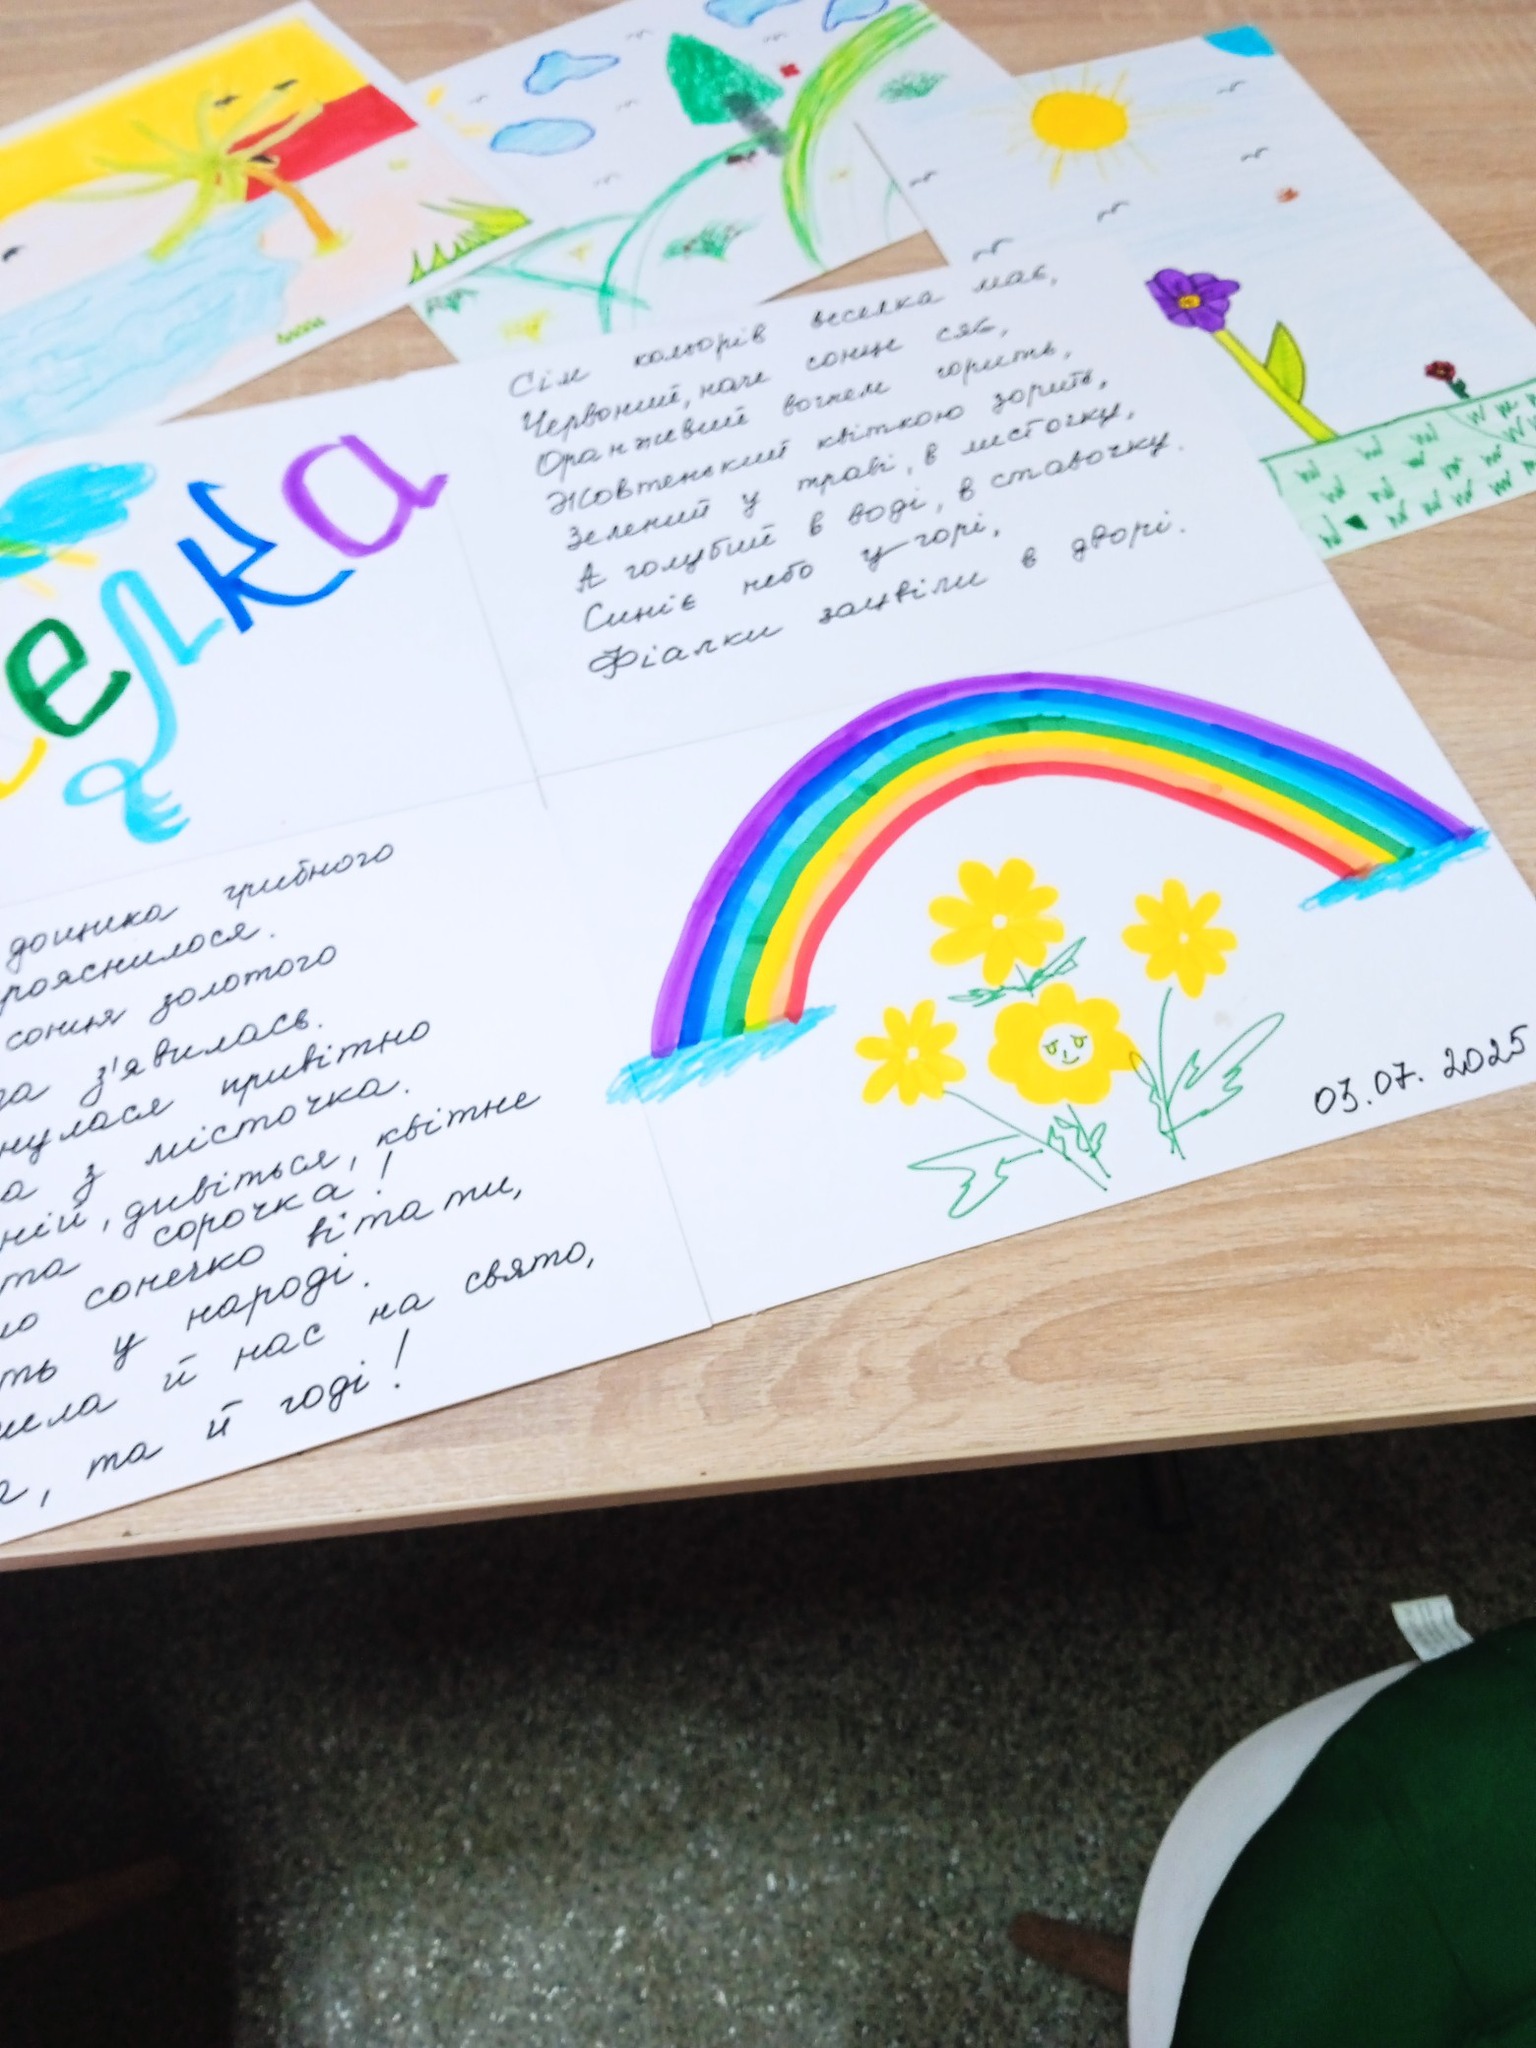 елка
Сім кольорів веселка має,
Червоний, наче сонце сяє,
Оранжевий вогнем горить,
Жовтенький квіткою зорить,
Зелений у траві, в листочку,
А голубий в воді, в ставочку.
Синіє небо угорі,
Фіалки зацвіли в дворі.
дощика грибного
прояснилося.
сонця золотого
з'явилась.
нулася привітно
а з місточка.
ній, дивіться, квітне
та сорочка!
ло сонечко вітати,
ть у народі.
шла й нас на свято,
а, та й годі!
03.07.2025